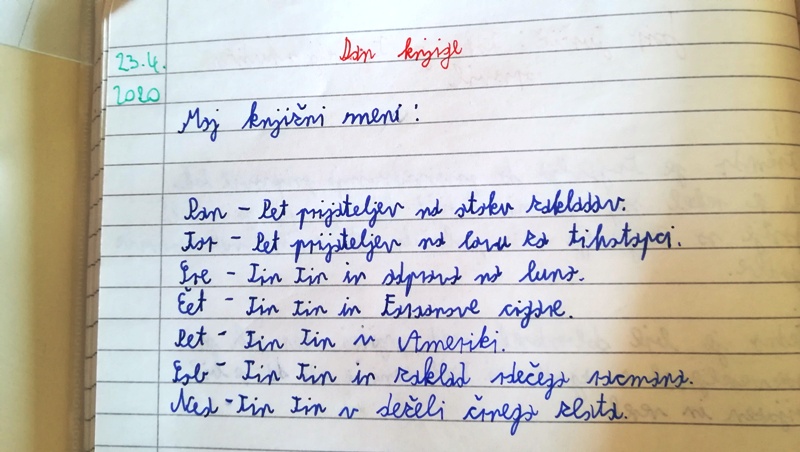 Dan knjige
23.4.
2020
Moj knjižni meni:
Pon - Pet prijateljev na otoku zakladov.
Tor - Pet prijateljev na lovu za tihotapci.
Sre - Tin Tin in odprava na luno.
Čet - Tin Tin in Faraonove cigare.
Pet - Tin Tin v Ameriki.
Sob - Tin Tin in zaklad rdečega racmana.
Ned - Tin Tin v deželi črnega zlata.